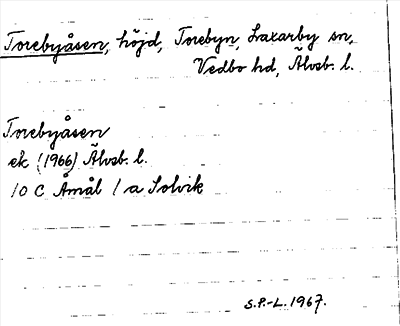 Torebyåsen, höjd, Torebyn, Laxarby sn,
Vedbo hd, Älvsb. l.
Torebyåsen
ek (1966) Älvsb. l.
10 C Åmål 1 a Solvik
S.P.-L. 1967.